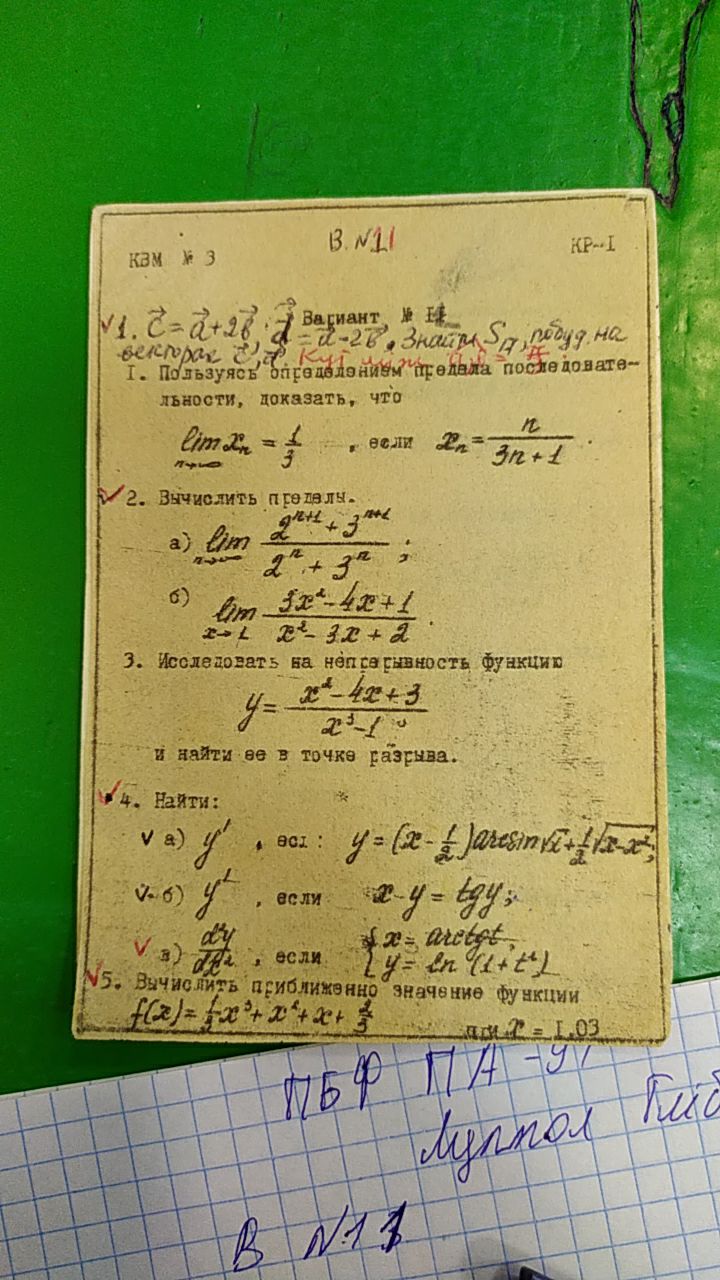 В. №11
КВМ № 3 КР-I
Вариант № II
1. c⃗ = a⃗ + 2b⃗, d⃗ = a⃗ - 2b⃗. Знайти S, побуд. на
векторах c⃗, d⃗. Кут між
I. Пользуясь определением предела последовате-
льности, доказать, что
lim xₙ = 1/3, если xₙ = n/(3n+1).
n→∞
2. Вычислить пределы.
а) lim (2ⁿ⁺¹ + 3ⁿ⁺¹)/(2ⁿ + 3ⁿ);
n→∞
б) lim (3x² - 4x + 1)/(x² - 3x + 2).
x→1
3. Исследовать на непрерывность функцию
y = (x² - 4x + 3)/(x³ - 1)
и найти ее в точке разрыва.
4. Найти:
а) y′, есл: y = (x - 1/2) arcsin√x + 1/2 √(x - x²);
б) y′, если x - y = tg y;
в) d²y/dx², если { x = arctgt, y = ln(1+t²)
5. Вычислить приближенно значение функции
f(x) = 1/3 x³ + x² + x + 2/3 при x = 1.03
ПБФ ПА-91
В №11